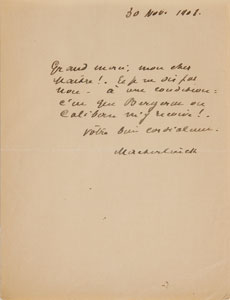 30 Nov. 1908.
Grand merci, mon cher
Maître! Et je ne dis pas
non - à une condition:
c'est que Bergerat ou
Caliban m'y reçoive!
Votre bien cordialement
Maeterlinck